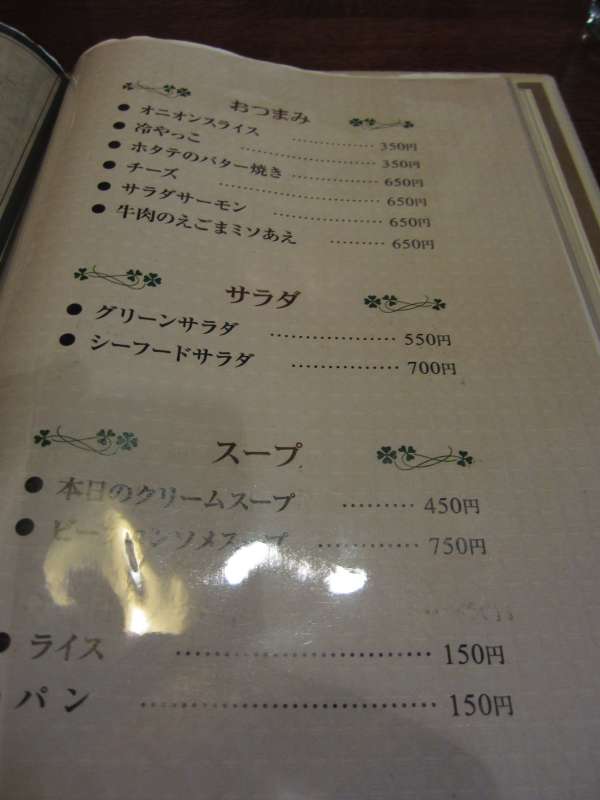 おつまみ
● オニオンスライス ………… 350円
● 冷やっこ ………… 350円
● ホタテのバター焼き ………… 650円
● チーズ ………… 650円
● サラダサーモン ………… 650円
● 牛肉のえごまミソあえ ……… 650円
サラダ
● グリーンサラダ ………… 550円
● シーフードサラダ ………… 700円
スープ
● 本日のクリームスープ ……… 450円
● ビーフコンソメスープ ………… 750円
● ライス ………… 150円
● パン ………… 150円